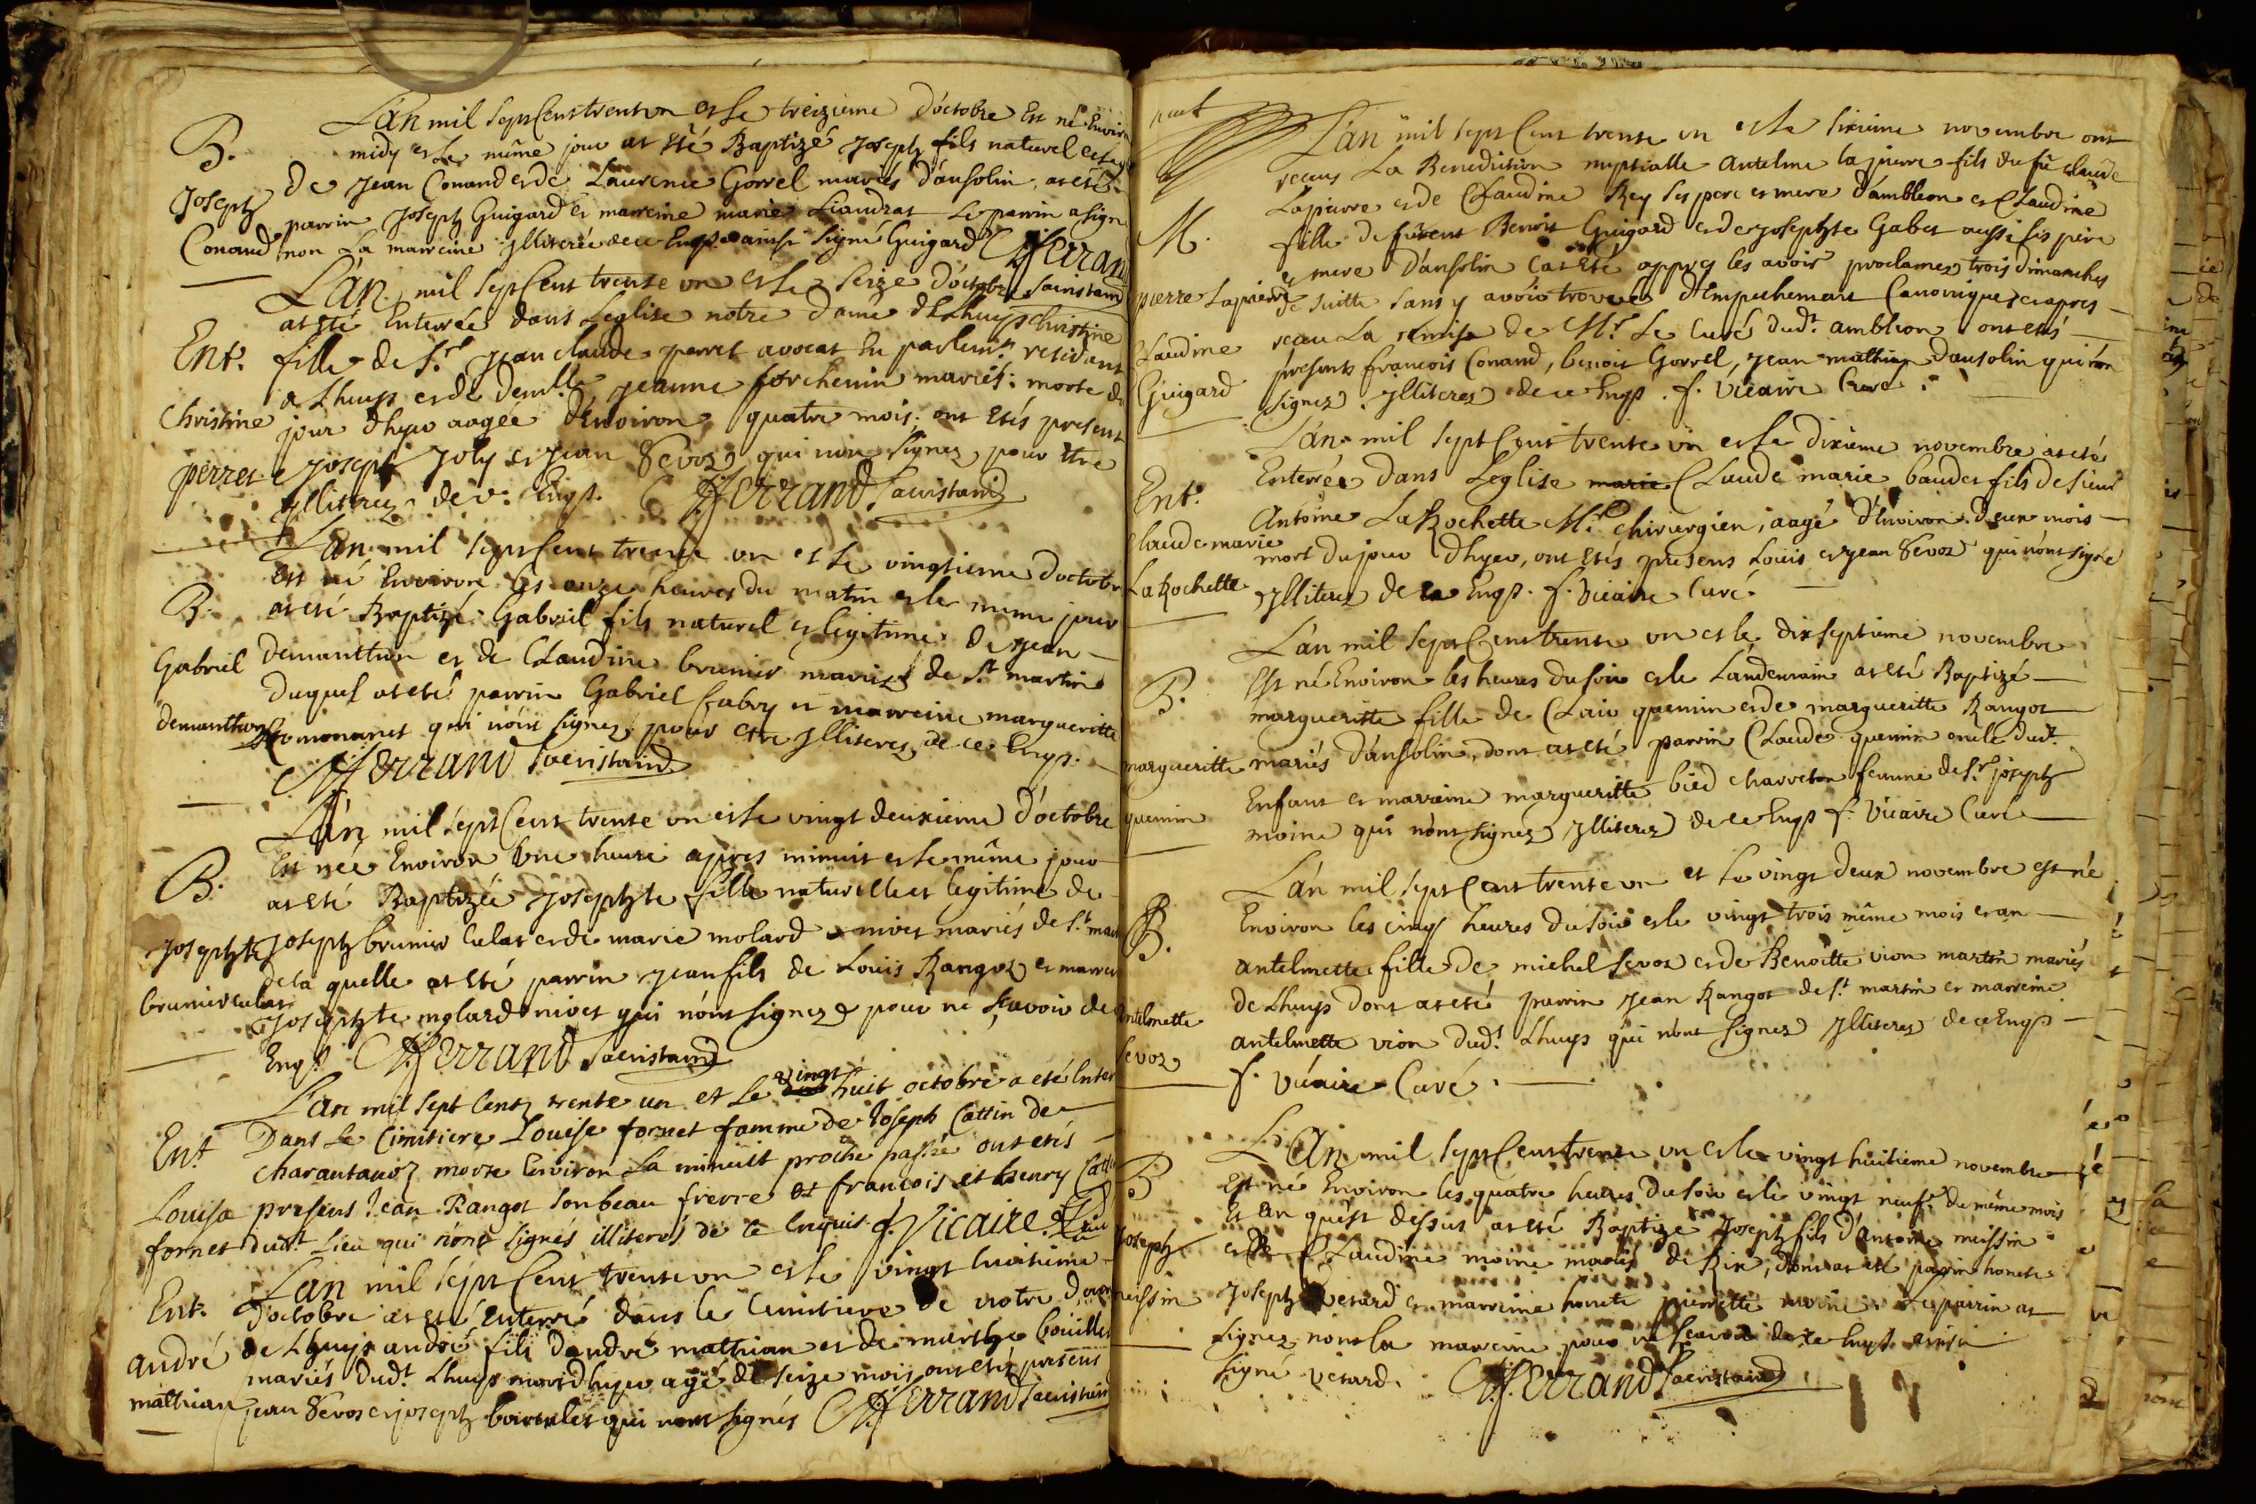 L'an mil sept Cent trent un et le treizieme d'octobre Est né Environ
midy et le même jour at Eté Baptizé Joseph fils naturel et leg
B.
de Jean Conand et de Laurence Gorrel mariés d'ansolin, at eté
Joseph
parrin Joseph Guigard et marreine marie Liaudrat Le parrin a signé
Conand
non La marreine Jlliterée de ce Enqs. ainsi signé Guigard Ferrand
L'an mil sept Cent trente un et le Seize d'octobre Sacristain
at Eté Enterrée dans Leglise notre dame de Lhuys Christine
Ent.
fille de Sr. Jean claude perret avocat En parlemt. residant
a Lhuys et de demlle. Jeanne forchenin mariés: morte du
Christine
jour d'hyer aagée d'Environ quatre mois; ont Etés present
perret
Joseph Joly et Jean Sevoz qui n'on signez pour être
Jlliterez de v. Enqs. Ferrand Sacristain
L'an mil sept Cent trente un et le vingtieme d'octobre
est né Environ les onze heures du matin et le même jour
B.
at eté Baptizé Gabriel fils naturel et legitime de Jean
Gabriel
demanthon et de Claudine brunier mariez de St. martin
duquel at eté parrin Gabriel Gabry et marreine margueritte
demanthon
qui n'ont signez pour etre Jlliterez de ce Enqs.
Ferrand Sacristain
L'an mil sept Cent trente un et le vingt deuxieme d'octobre
Est née Environ Une heure apres minuit et le même jour
B.
at Eté Baptizée Josephte fille naturelle et legitime de
Josephte
Joseph brunier Culat et de marie molard nivet mariés de St. mar
de la quelle at Eté parrin Jean fils de Louis Rangoz et marrei
brunier culat
Josephte molard nivet qui n'ont signez pour ne sçavoir de
Enqs. Ferrand Sacristain
L'an mil sept Cent trente un et Le vingt huit octobre a eté Enter
Ent.
Dans Le Cimitiere Louise fornet famme de Joseph Cattin de
Charantavoz morte Environ La minuitt proche passée ont etés
Louise
presens Jean Rangot son beau frerre et francois et henry Catt
fornet
dudt. Lieu qui n'ont signés illiterés de ce Enquis f. Vicaire Curé
L'an mil sept Cent trente un et le vingt huitieme
Ent.
d'octobre at eté enterré dans le Cimitiere de notre dame
André
de Lhuys andré fils d'andré mathian et de marthe bouillet
mariés dudt. Lhuys mort d'hyer agé de seize mois ont etés presens
mathian
jean Sevoz et joseph qui n'ont signés Ferrand Sacristain
L'an mil sept Cent trente un et le sixieme novembre ont
receus La Benediction nuptialle antelme lapierre fils du fû claude
Lapierre et de Claudine Rey ses pere et mere d'ambleon et Claudine
M.
fille de feu Benoit Guigard et de Josephte Gabet aussi ses père
et mere d'ansolin Cat Eté appres les avoir proclamez trois dimanches
pierre Lapierre
de suitte sans y avoir trouvez d'Empechement Canonique, et apres
receu La remise de Mr. Le Curé dudt. amblion ont etés
Claudine
presents francois Conand, benoit Gorrel, Jean mathian dansolin qui n'on
Guigard
signez Jlliterez de ce Enqs. f. Vicaire Curé.
L'an mil sept Cent trente un et le dixieme novembre at eté
Enterrée dans Leglise Claude marie baudet fils de sieur
Ent.
Antoine La Rochette Mr. Chirurgien, aagé d'Environ deux mois
Claude marie
mort du jour d'hyer, ont etés presens Louis et jean Sevoz qui n'ont signé
La Rochette
Jlliterez de ce Enqs. f. Vicaire Curé.
L'an mil sept Cent trente un et le dix septieme novembre
Est né Environ les heures du soir et le Landemain at eté Baptizé
B.
margueritte fille de Clair quemin et de margueritte Rangot
margueritte
mariés d'ansolin, dont at eté parrin Claude quemin oncle dudt.
quemin
Enfant et marreine margueritte bied charreton femme de Sr. joseph
moine qui n'ont signez Jlliterez de ce Enqs. f. Vicaire Curé
L'an mil sept Cent trente un et le vingt deux novembre est né
Environ les cinq heures du soir et le vingt trois même mois et an
B.
antelmette fille de michel Sevoz et de Benoitte vion martin mariés
de Lhuys dont at eté parrin Jean Rangot de St. martin et marreine
antelmette
antelmette vion dudt. Lhuys qui n'ont signez Jlliterez de ce Enqs
Sevoz
f. Vicaire Curé.
L'an mil sept Cent trente un et le vingt huitieme novembre
B
Est né Environ les quatre heures du soir et le vingt neufe. du même mois
Et an qu'est dessus at eté Baptize Joseph fils d'antoine meissin
Joseph
et de Claudine moine mariés de Rix, dont at eté parrin honete
meissin
Joseph verard et marreine honete pierrette moine et parrin at
signez non la marreine pour ne sçavoir de ce Enqs. ainsi
signé verard. Ferrand Sacristain